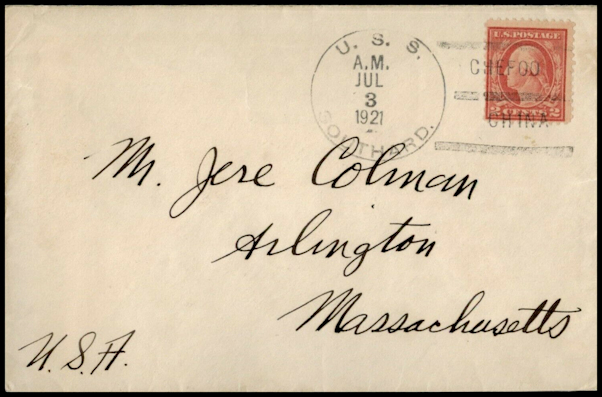 U. S. S.
A.M.
JUL
3
1921
SOUTHARD.
CHEFOO
CHINA
U.S. POSTAGE
2 CENTS 2
Mr. Jere Colman
Arlington
Massachusetts
U.S.A.